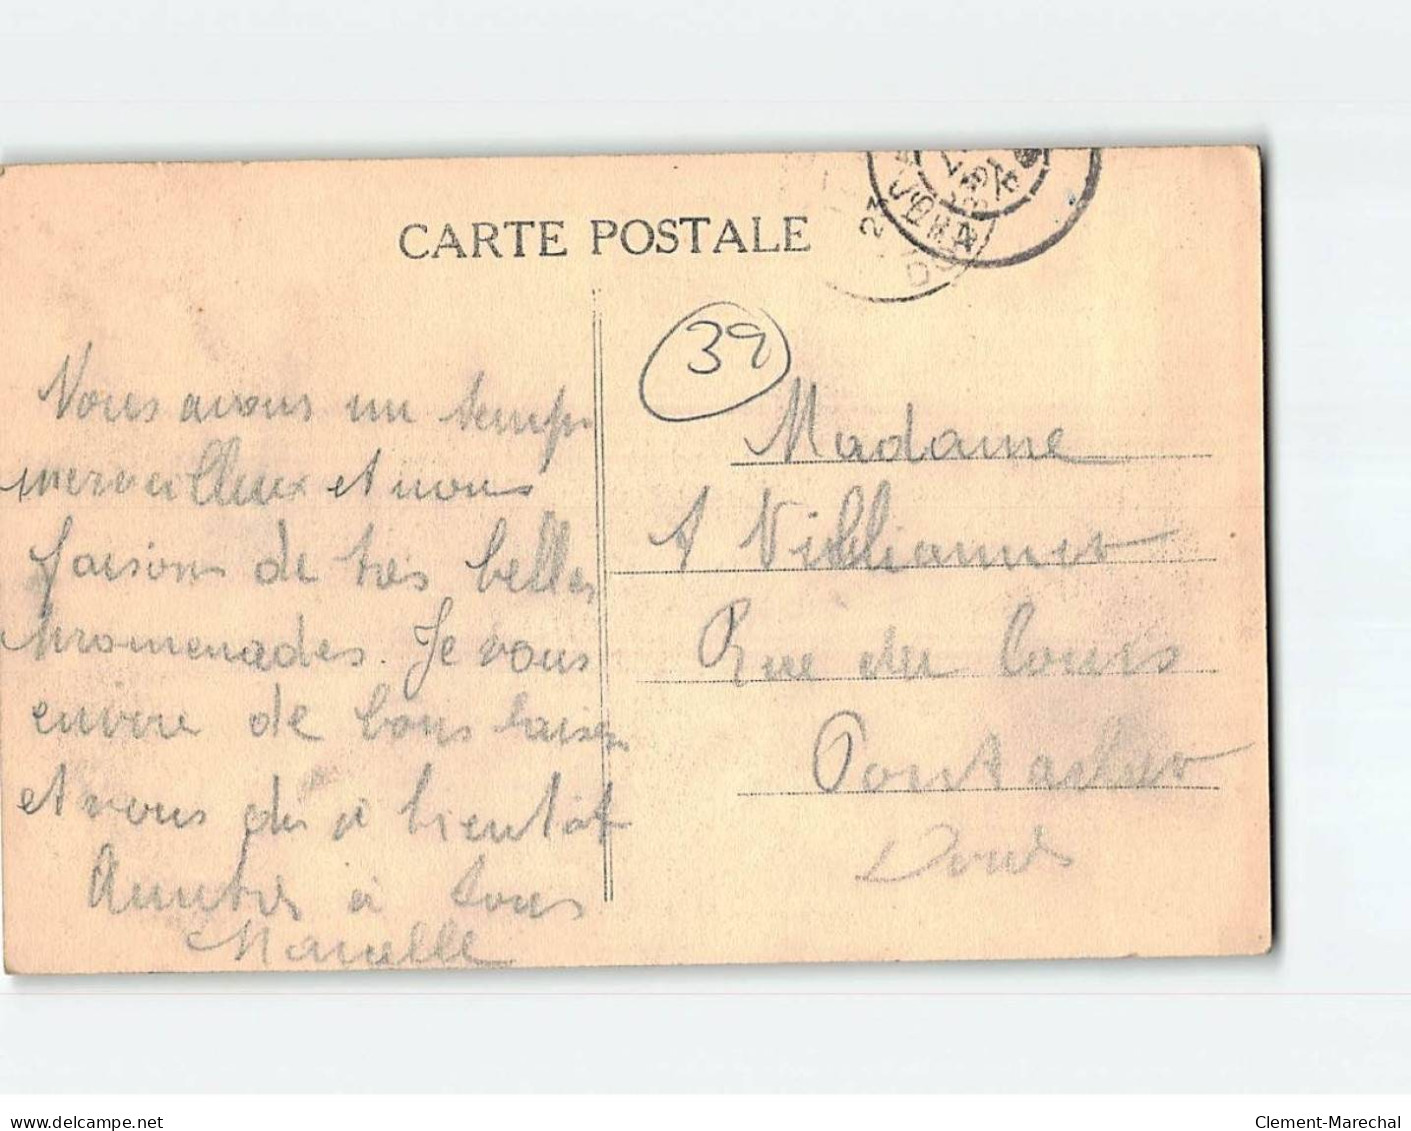 CARTE POSTALE
23
JURA
39
Nous avons un temps
merveilleux et nous
faisons de très belles
promenades. Je vous
envoie de bons baisers
et vous dis à bientôt
Amitiés à tous
Marcelle
Madame
A
Rue du Cours
Pontarlier
Doubs
delcampe.net
Clement-Marechal